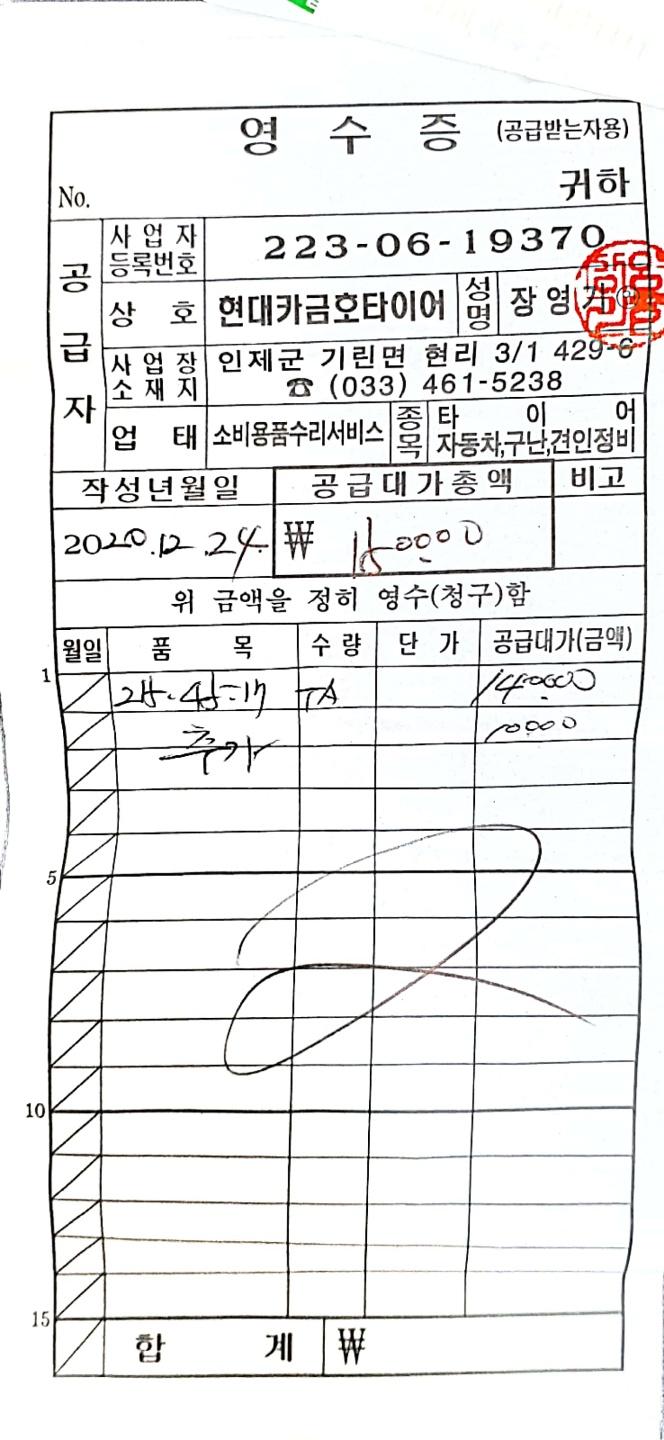 영 수 증 (공급받는자용)
No. 귀하
공급자
사업자등록번호 223-06-19370
상 호 현대카금호타이어 성명 장영
사업장소재지 인제군 기린면 현리 3/1 429-6
☎ (033) 461-5238
업 태 소비용품수리서비스 종목 타 이 어
자동차,구난,견인정비
작성년월일 공급대가총액 비고
2020.12.24. ₩ 150000
위 금액을 정히 영수(청구)함
월일 품 목 수량 단 가 공급대가(금액)
1
TA 140000
추가 10000
5
10
15
합 계 ₩